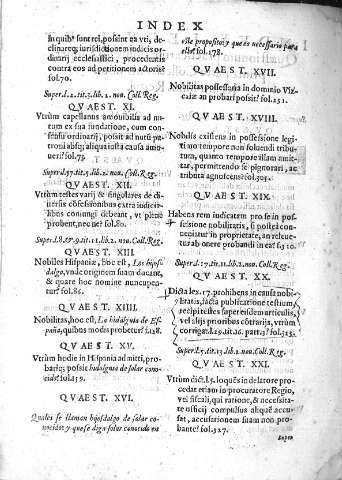 INDEX
in quibꝰ sunt rei, possint ea vti, de-
clinareq; iurisdictionem iudicis ordi-
narij ecclesiastici, procedentis
contra eos ad petitionem actoris?
fol.70.
Super.l.2.tit.3.lib.2.nou. Coll.Reg.
QVAEST. XI.
Vtrum capellanus amouibilis ad nu-
tum ex sua fundatione, cum consen-
su ordinarij, possit ad nutũ pa-
troni absq; aliqua iusta causa amoue-
ri? fol.75.
Super.l.57.tit.5.lib.2.nou.Coll.Reg.
QVAEST. XII.
Vtrum testes varij & singulares de di-
uersis obsessionibus extra iudicia-
libus coniungi debeant, vt plene
probent, nec ne? fol.80.
Super.l.8.&.9.tit.11.lib.2.nou.Coll.Reg.
QVAEST. XIII.
Nobiles Hispaniæ, hoc est, Los hijos-
dalgo, vnde originem suam ducant,
& quare hoc nomine nuncupen-
tur? fol.86.
QVAEST. XIIII.
Nobilitas, hoc est, La hidalguia de Es-
paña, quibus modis probetur? f.138.
QVAEST. XV.
Vtrum hodie in Hispania admitti, pro-
bariq; possit hidalguia de solar cono-
cido? fol.159.
QVAEST. XVI.
Quales se llaman hijosdalgo de solar co-
nocido: y que se diga solar conocido en
este proposito: y que es necessario para
ello? fol.178.
QVAEST. XVII.
Nobilitas possessoria in dominio Viz-
caiæ an probari possit? fol.251.
QVAEST. XVIII.
Nobilis existens in possessione legiti
mo tempore non soluendi tributa
quanto tempore illam amit-
tat, permittendo se pignorari, ac
tributa agnoscens? fol.305.
QVAEST. XIX.
Habens rem iudicatam pro se in pos-
sessione nobilitatis, si postea con-
ueniatur in proprietate, an releue-
tur ab onere probandi in ea? f.510.
Super.l.17.tit.11.lib.2.nou.Coll.Reg.
QVAEST. XX.
Dicta lex.17. prohibens in causis nobi-
litatis, iacta publicatione testium,
recipi testes super eisdem articulis,
vel alijs prioribus cõtrarijs, vtrum
corrigat.l.39.tit.16.part.3? fol.515.
Super.l.7.tit.13.lib.2.nou.Coll.Reg.
QVAEST. XXI.
Vtrum dict.l.5. loquẽs in delatore pro-
cedat etiam in procuratore Regio,
vel fiscali, qui ratione, & necessita-
te officij compulsus aliquẽ accu-
sat, accusationem suam non pro-
bante? fol.527.
Super